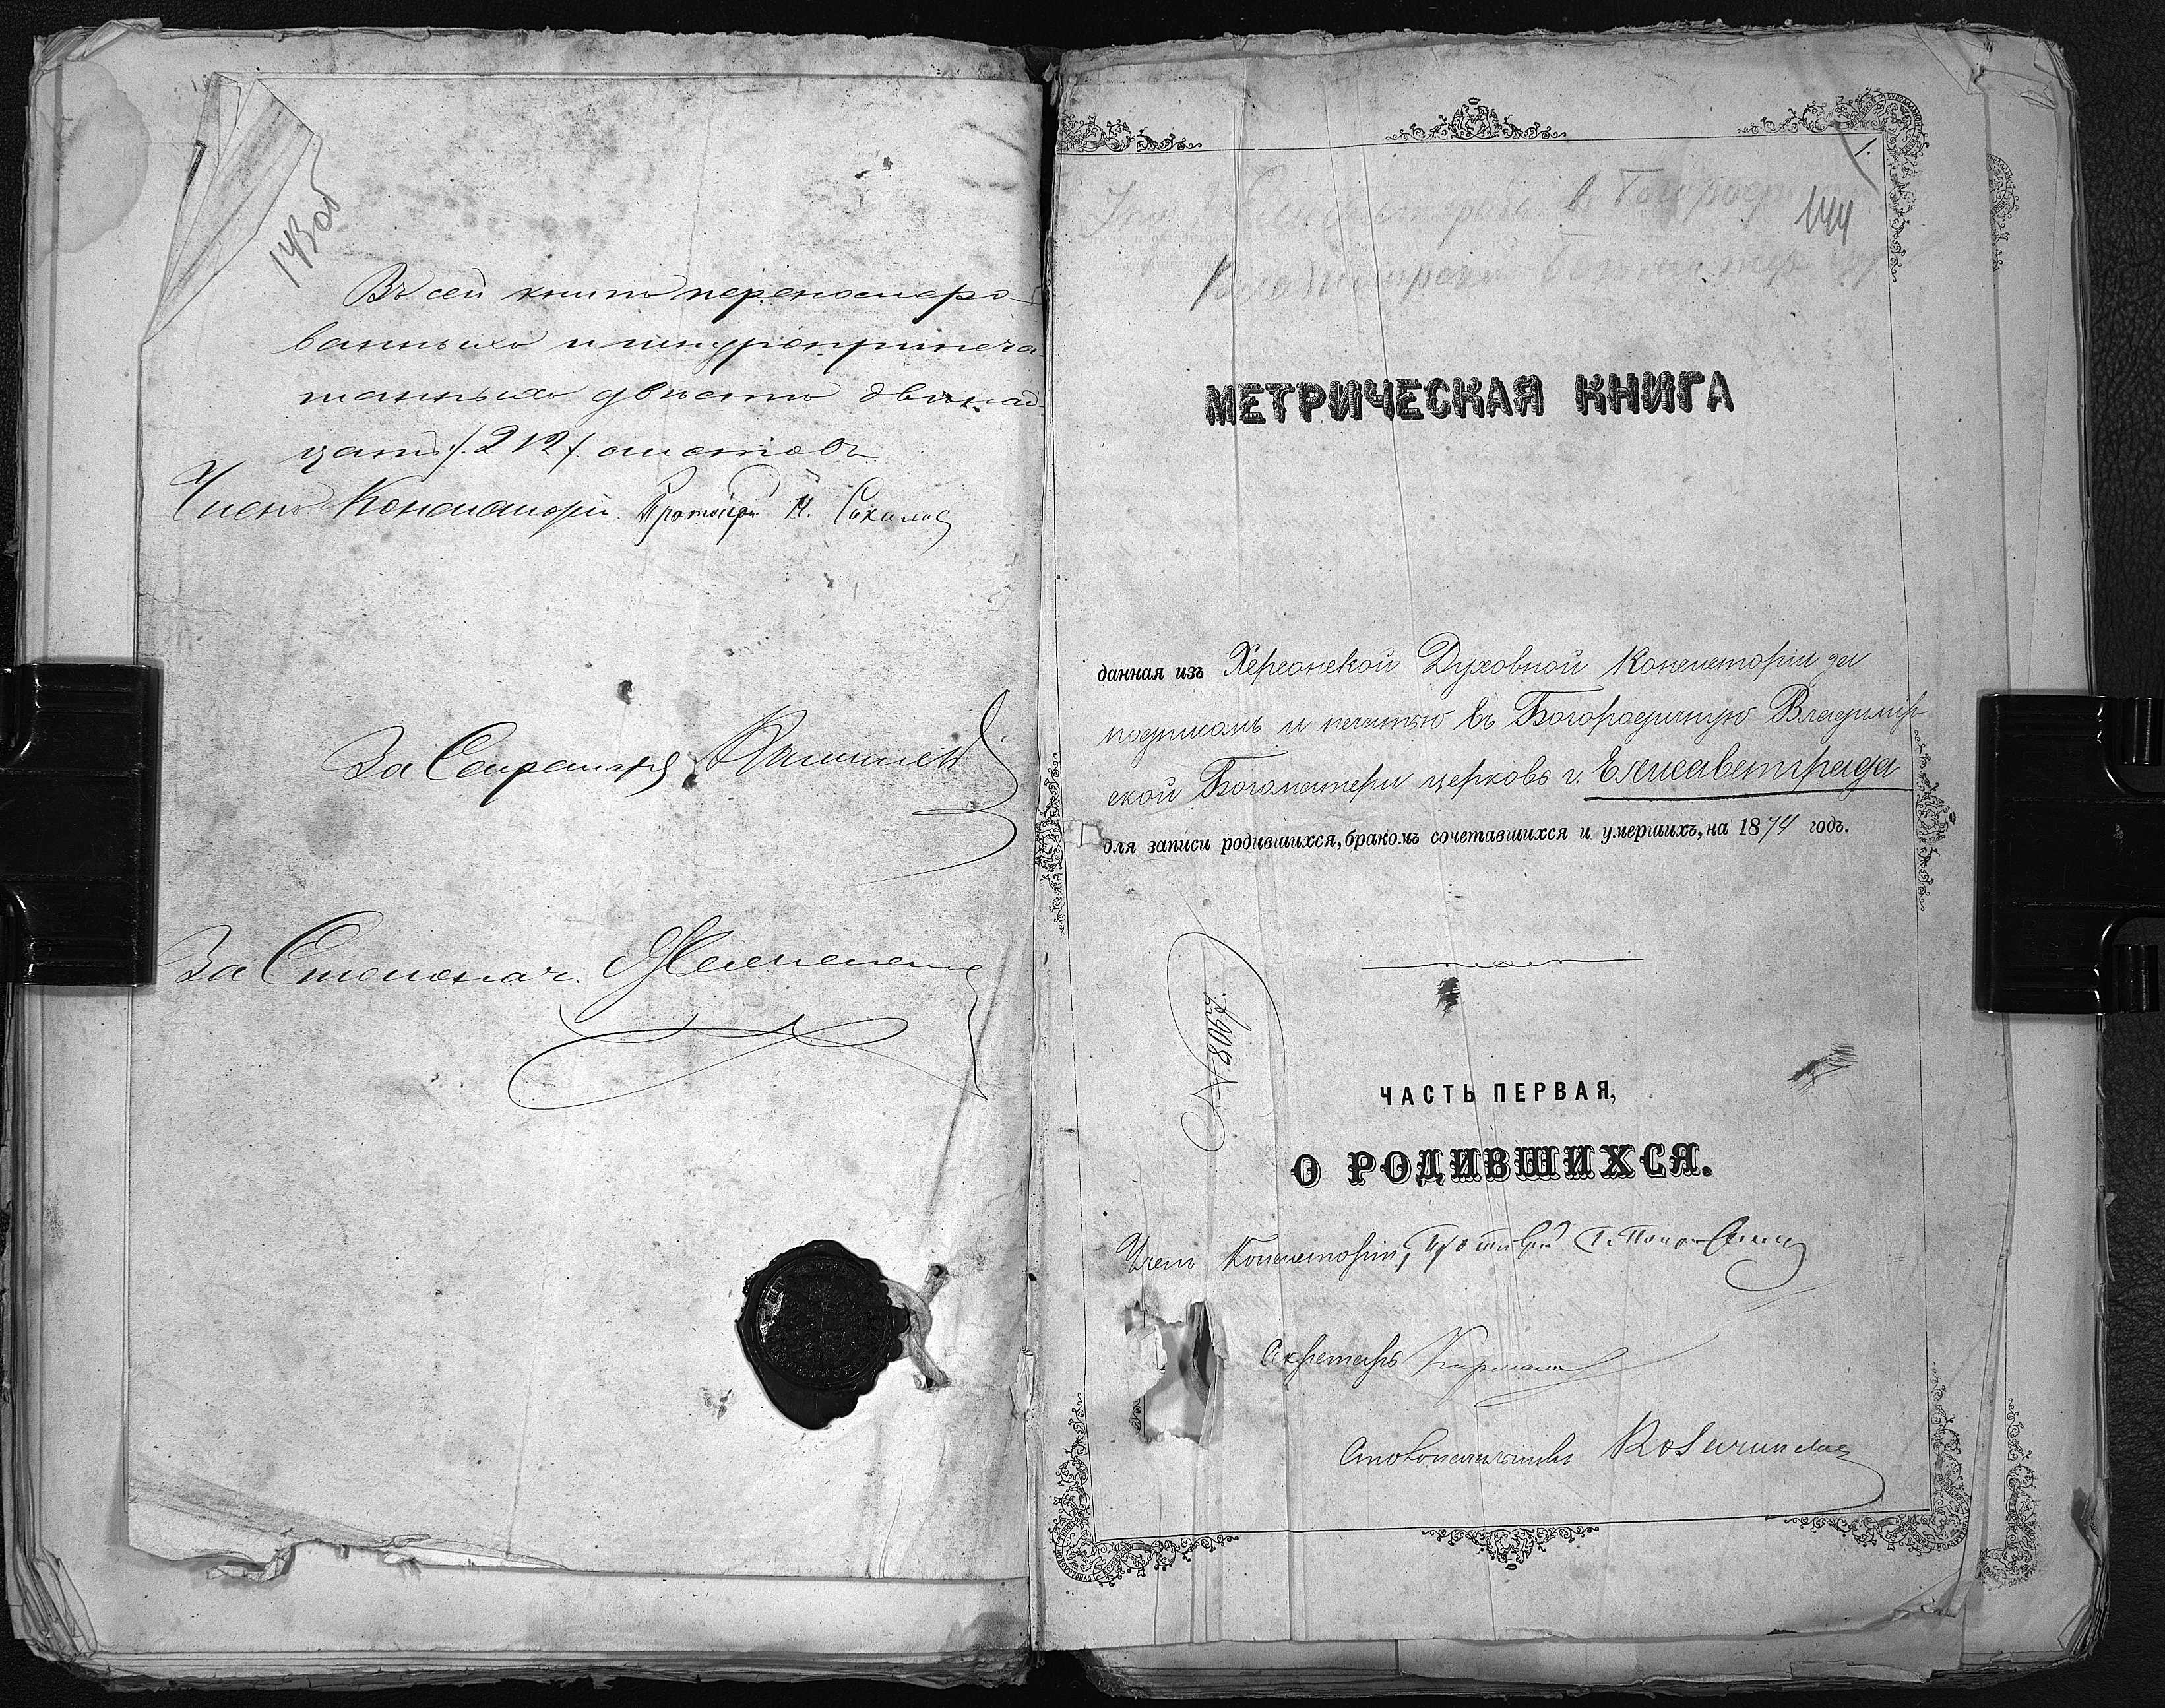 143об
Въ сей книгѣ перенумеро-
ванныхъ и шнуроприпеча-
танныхъ двѣсти двѣнад-
цать /.212/. листовъ
Членъ Консисторіи Протоіерей
За Секретаря
За Столонач.
1.
144
Елисаветградъ в Богород
Владимірской Богоматери
МЕТРИЧЕСКАЯ КНИГА
данная изъ Херсонской Духовной Консисторіи за
подписомъ и печатью въ Богородичную Владимір-
ской Богоматери церковь г. Елисаветграда
для записи родившихся, бракомъ сочетавшихся и умершихъ, на 1874 годъ.
ЧАСТЬ ПЕРВАЯ,
О РОДИВШИХСЯ.
Членъ Консисторіи, Протоіерей
Секретарь
Столоначальникъ